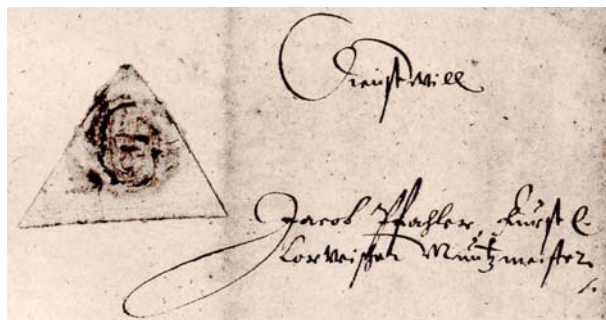 Dienstwill
Jacob Pfahler, Fürstl.
Corveischer Müntzmeister